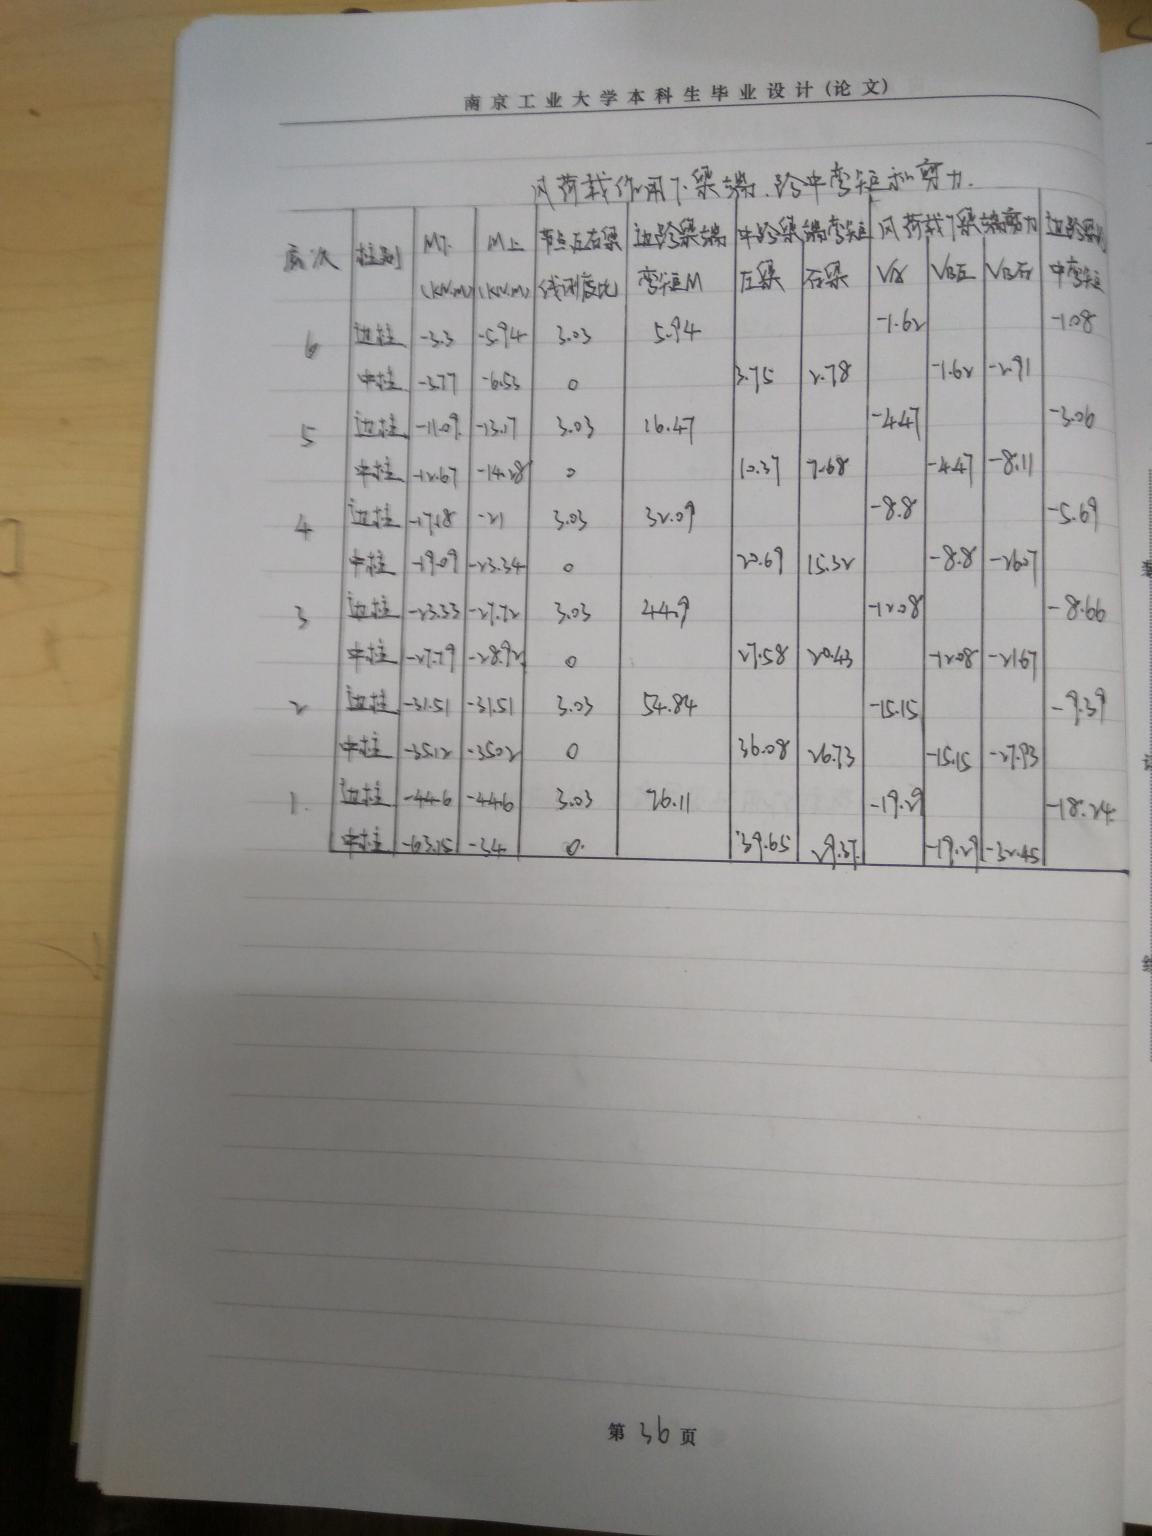 南京工业大学本科生毕业设计(论文)
风荷载作用下梁端、跨中弯矩和剪力.
层次 柱别 M下 M上 节点左右梁 边跨梁端 中跨梁端弯矩 风荷载下梁端剪力 边跨梁跨
(KN.m) (KN.m) 线刚度比 弯矩M 左梁 右梁 VA VB左 VB右 中弯矩
6 边柱 -3.3 -5.94 3.03 5.94 -1.62 -1.08
中柱 -3.77 -6.53 0 3.75 2.78 -1.62 -2.91
5 边柱 -11.09 -13.17 3.03 16.47 -4.47 -3.06
中柱 -12.67 -14.28 0 10.37 7.68 -4.47 -8.11
4 边柱 -17.18 -21 3.03 32.09 -8.8 -5.69
中柱 -19.09 -23.34 0 20.69 15.32 -8.8 -16.07
3 边柱 -23.33 -27.72 3.03 44.9 -12.08 -8.66
中柱 -27.79 -28.92 0 27.58 20.43 -12.08 -21.67
2 边柱 -31.51 -31.51 3.03 54.84 -15.15 -9.39
中柱 -35.12 -35.02 0 36.08 26.73 -15.15 -27.93
1. 边柱 -44.6 -44.6 3.03 76.11 -19.29 -18.24
中柱 -63.15 -34 0. 39.65 29.37. -19.29 -32.45
第36页